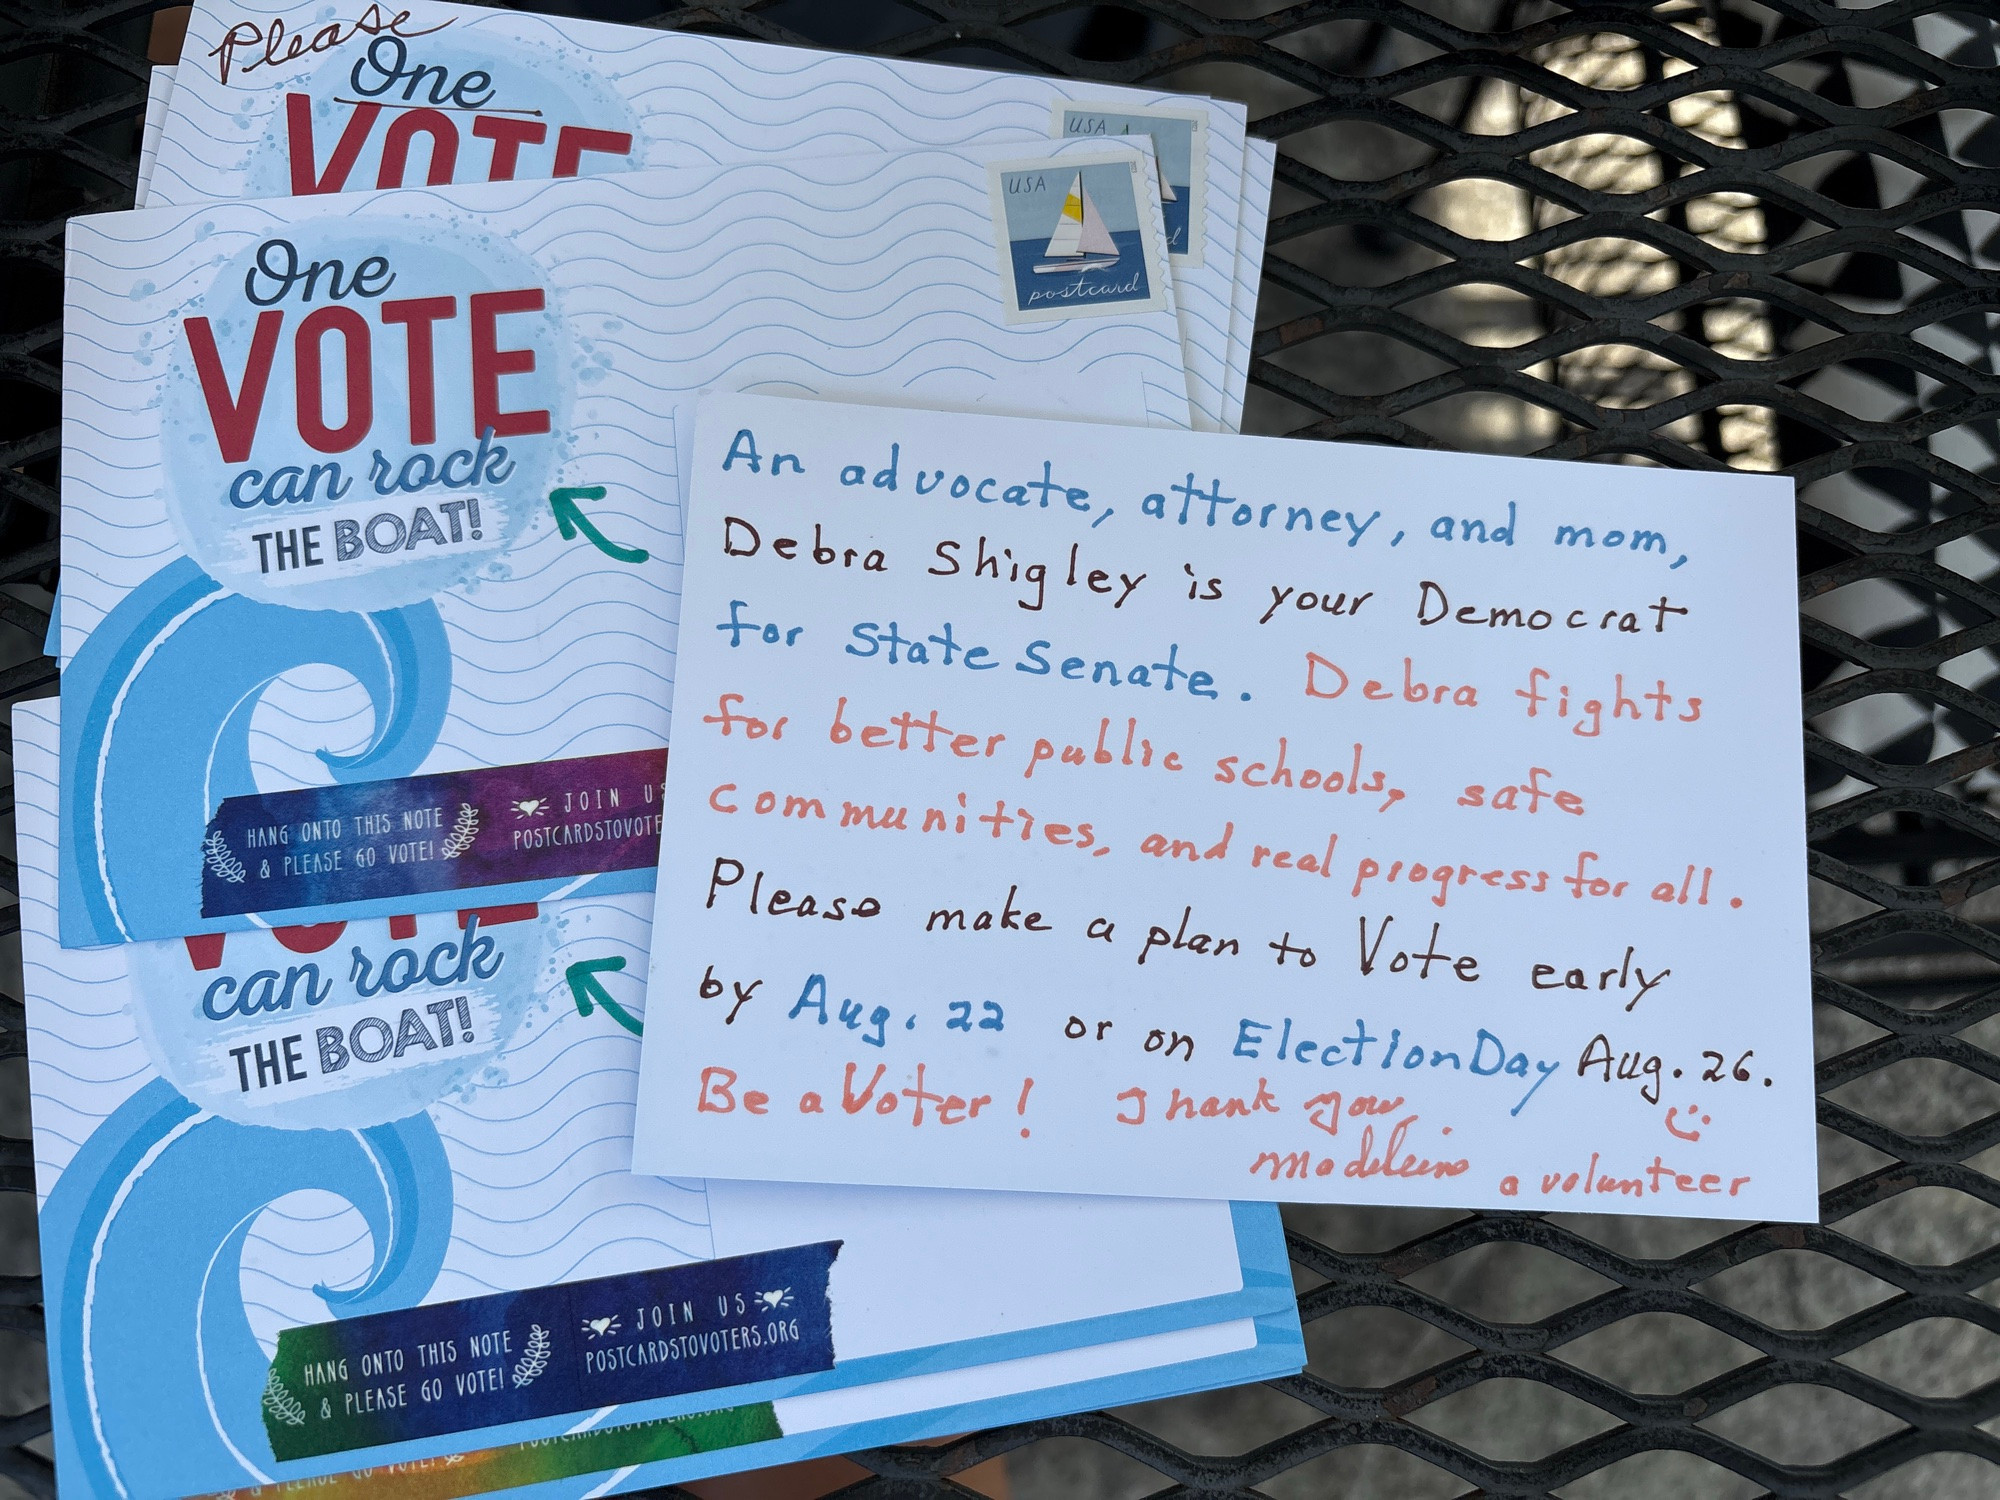 Please
One
VOTE
USA
USA
postcard
One
VOTE
can rock
THE BOAT!
HANG ONTO THIS NOTE
& PLEASE GO VOTE!
JOIN US
POSTCARDSTOVOTE
An advocate, attorney, and mom,
Debra Shigley is your Democrat
for State Senate. Debra fights
for better public schools, safe
communities, and real progress for all.
Please make a plan to Vote early
by Aug. 22 or on Election Day Aug. 26.
Be a Voter! Thank you,
Madeleine a volunteer
VOTE
can rock
THE BOAT!
HANG ONTO THIS NOTE
& PLEASE GO VOTE!
JOIN US
POSTCARDSTOVOTERS.ORG
POSTCARDSTOVOTERS.ORG
& PLEASE GO VOTE!